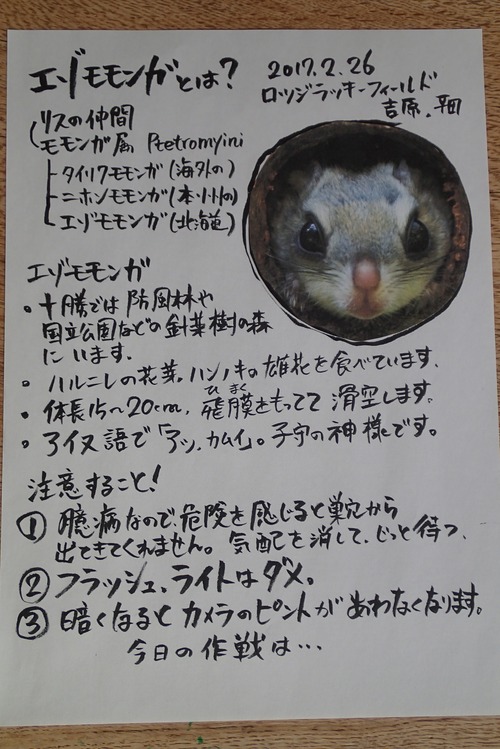 エゾモモンガとは?
2017.2.26
ロッジラッキーフィールド
吉原、平田
リスの仲間
モモンガ属 Pteromyini
タイリクモモンガ(海外の)
ニホンモモンガ(本州の)
エゾモモンガ(北海道)
エゾモモンガ
・十勝では防風林や
国立公園などの針葉樹の森
にいます.
・ハルニレの花芽。ハンノキの雄花を食べています.
・体長15〜20cm、飛膜をもってて滑空します。
ひまく
・アイヌ語で「アッ.カムイ」。子守の神様です。
注意すること!
① 臆病なので、危険を感じると巣穴から
出てきてくれません。気配を消して、じっと待つ、
② フラッシュ、ライトはダメ。
③ 暗くなるとカメラのピントがあわなくなります。
今日の作戦は…